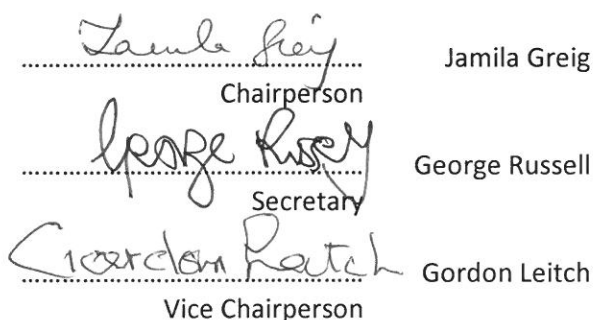 Jamila Greig Jamila Greig
Chairperson
George Russell George Russell
Secretary
Gordon Leitch Gordon Leitch
Vice Chairperson